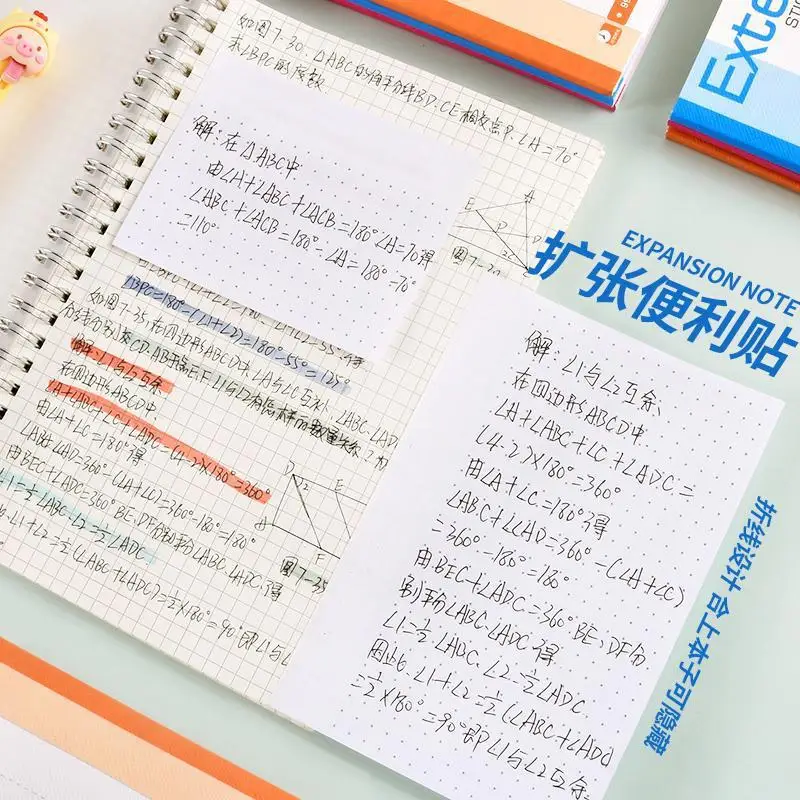 如图7-30.△ABC的角平分线BD.CE相交点P.∠A=70°
求∠BPC的度数.
解:在△ABC中
由∠A+∠ABC+∠ACB.=180°∠A=70得
∠ABC+∠ACB=180°-∠A=180°-70°
=110°
E
A
P
D
∠BPC=180°-(∠1+∠2)=180°-55°=125°
如图7-35,在四边形ABCD中,∠A与∠C互补,∠ABC.∠ADC
解:∠1与∠2互余.
在四边形ABCD中.
∠A+∠ABC+∠C+∠ADC=(4-2)×180°=360°
由∠A+∠C=180°得.
-(∠A+∠C)=360°-180°=180°
由BEC+∠ADC=360°BE,DF分别平分∠ABC.∠ADC.得
∠1=½∠ABC.∠2=½∠ADC
∠1+∠2=½(∠ABC+∠ADC)=½×180°=90°.即∠1与∠
D
E
A
F
图7-35
解:∠1与∠2互余、
在四边形ABCD中
∠A+∠ABC+∠C+∠ADC.=
(4-2)×180°=360°
由∠A+∠C=180°得
∠ABC+∠CAD=360°-(∠A+∠C)
=360°-180°=180°
由.BEC+∠ADC.=360°BE、DF分
别平分∠ABC.∠ADC.得.
∠1=½.∠ABC.∠2=½∠ADC.
因此6.∠1+∠2=½(∠ABC+∠ADd
=½×180°=90°即∠1与∠2互余.
EXPANSION NOTE
扩张便利贴
折线设计 合上本子可隐藏
Exte
STIC